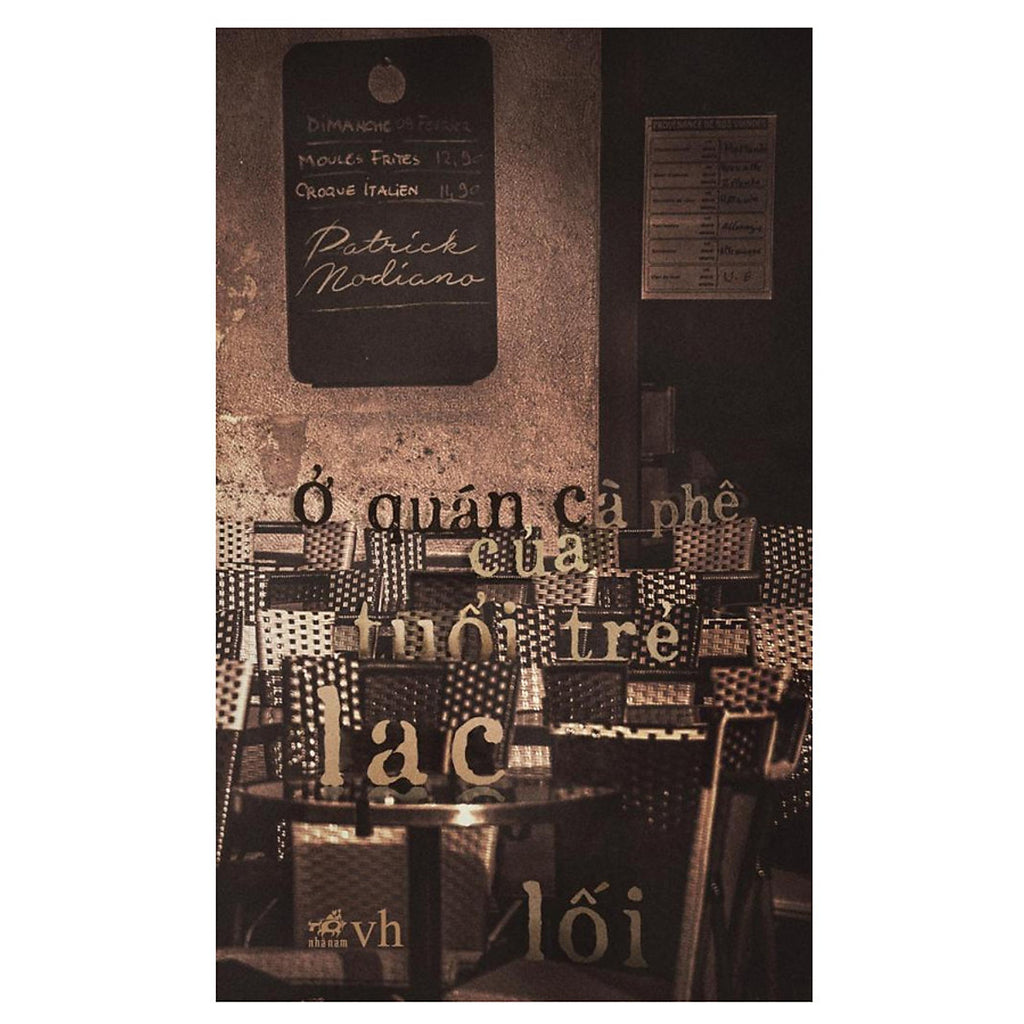 DIMANCHE 09 FÉVRIER
MOULES FRITES 12,90
CROQUE ITALIEN 11,90
Patrick
Modiano
PROVENANCE DE NOS VIANDES
U.E
ở quán cà phê
của
tuổi trẻ
lạc
lối
nhã nam
vh